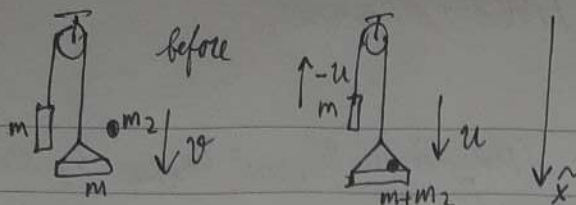 before
m
m2
v
m
-u
m
u
m+m2
x̂